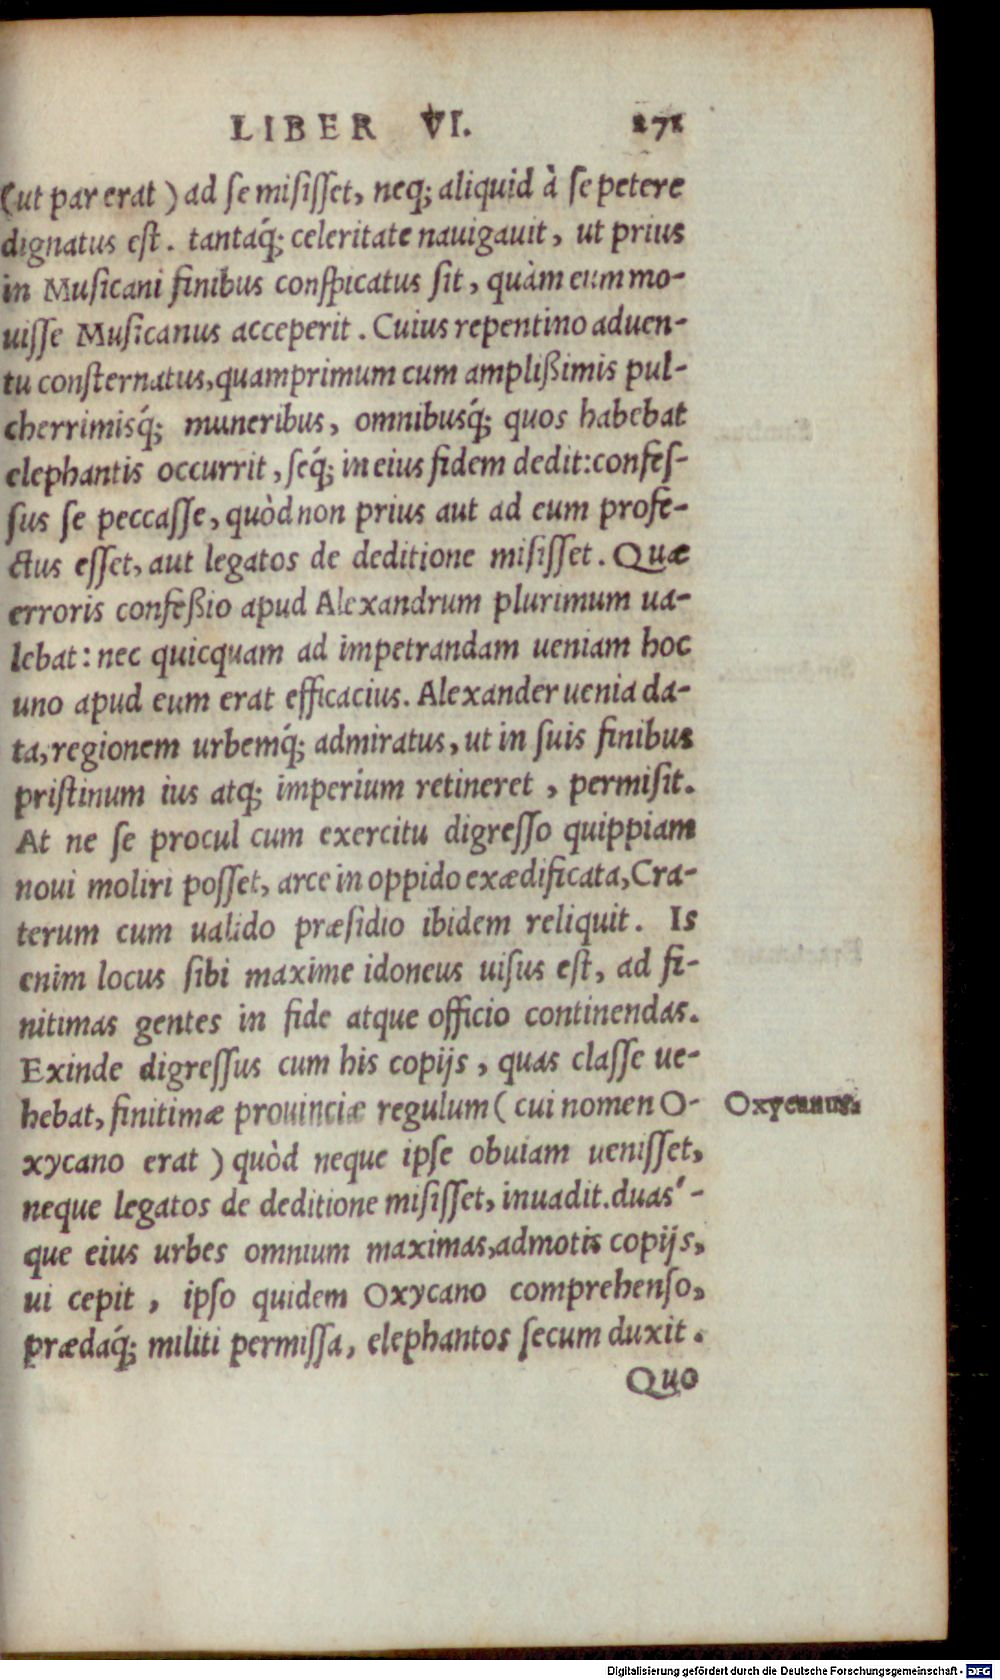 LIBER VI. 271
(ut par erat) ad se misisset, neq; aliquid à se petere
dignatus est. tantaq́; celeritate nauigauit, ut prius
in Musicani finibus conspicatus sit, quàm eum mo-
uisse Musicanus acceperit. Cuius repentino aduen-
tu consternatus, quamprimum cum amplißimis pul-
cherrimisq́; muneribus, omnibusq́; quos habebat
elephantis occurrit, seq́; in eius fidem dedit: confes-
sus se peccasse, quòd non prius aut ad eum profe-
ctus esset, aut legatos de deditione misisset. Quæ
erroris confeßio apud Alexandrum plurimum ua-
lebat: nec quicquam ad impetrandam ueniam hoc
uno apud eum erat efficacius. Alexander uenia da-
ta, regionem urbemq́; admiratus, ut in suis finibus
pristinum ius atq; imperium retineret, permisit.
At ne se procul cum exercitu digresso quippiam
noui moliri posset, arce in oppido exædificata, Cra-
terum cum ualido præsidio ibidem reliquit. Is
enim locus sibi maxime idoneus uisus est, ad fi-
nitimas gentes in fide atque officio continendas.
Exinde digressus cum his copijs, quas classe ue-
hebat, finitimæ prouinciæ regulum (cui nomen O-
Oxycanus.
xycano erat) quòd neque ipse obuiam uenisset,
neque legatos de deditione misisset, inuadit. duas'-
que eius urbes omnium maximas, admotis copijs,
ui cepit, ipso quidem Oxycano comprehenso,
prædaq́; militi permissa, elephantos secum duxit.
Quo
Digitalisierung gefördert durch die Deutsche Forschungsgemeinschaft - DFG